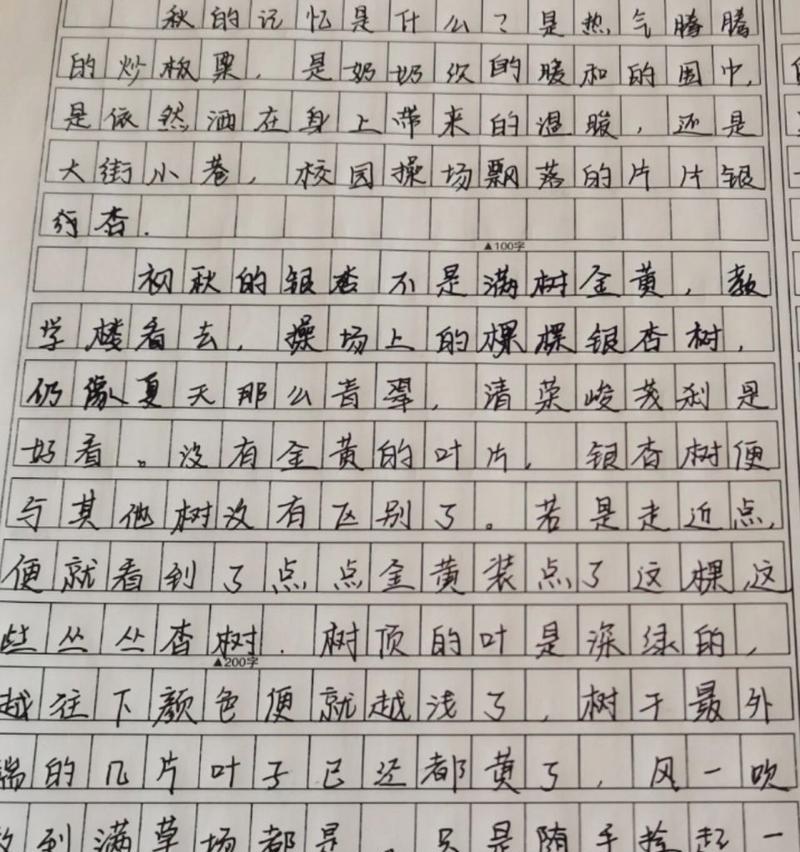 秋的记忆是什么?是热气腾腾
的炒板栗,是奶奶织的暖和的围巾,
是依然洒在身上带来的温暖,还是
大街小巷,校园操场飘落的片片银
行杏.
▲100字
初秋的银杏不是满树金黄,教
学楼看去,操场上的棵棵银杏树,
仍像夏天那么青翠,清荣峻茂刹是
好看。没有金黄的叶片,银杏树便
与其他树没有区别了。若是走近点,
便就看到了点点金黄装点了这棵这
些丛丛杏树.树顶的叶是深绿的,
▲200字
越往下颜色便就越浅了,树干最外
端的几片叶子已还都黄了,风一吹
到满草场都是,只是随手捡起一